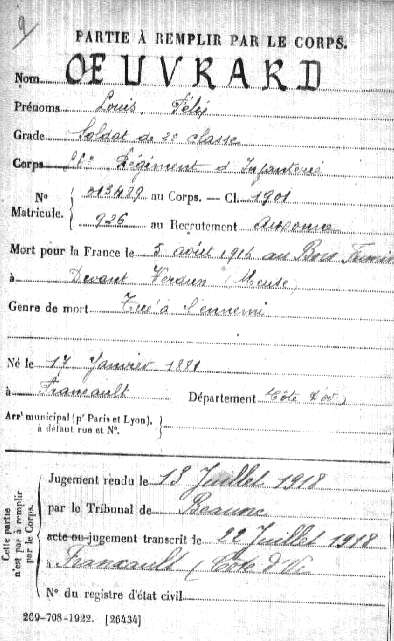 PARTIE À REMPLIR PAR LE CORPS.
Nom OEUVRARD
Prénoms Louis, Félix
Grade Soldat de 2e classe
Corps Régiment d'Infanterie
N° Matricule. au Corps. — Cl. 1901
926 au Recrutement Auxonne
Mort pour la France le 5 août 1916 au Bois
à Devant Verdun (Meuse)
Genre de mort Tué à l'ennemi
Né le 17 Janvier 1881
à Francault Département Côte d'Or
Arrt municipal (pr Paris et Lyon),
à défaut rue et N°.
Cette partie
n'est pas à remplir
par le Corps.
Jugement rendu le 13 Juillet 1918
par le Tribunal de Beaune
acte ou jugement transcrit le 22 Juillet 1918
à Francault (Côte d'Or
N° du registre d'état civil
269-708-1922. [26434]